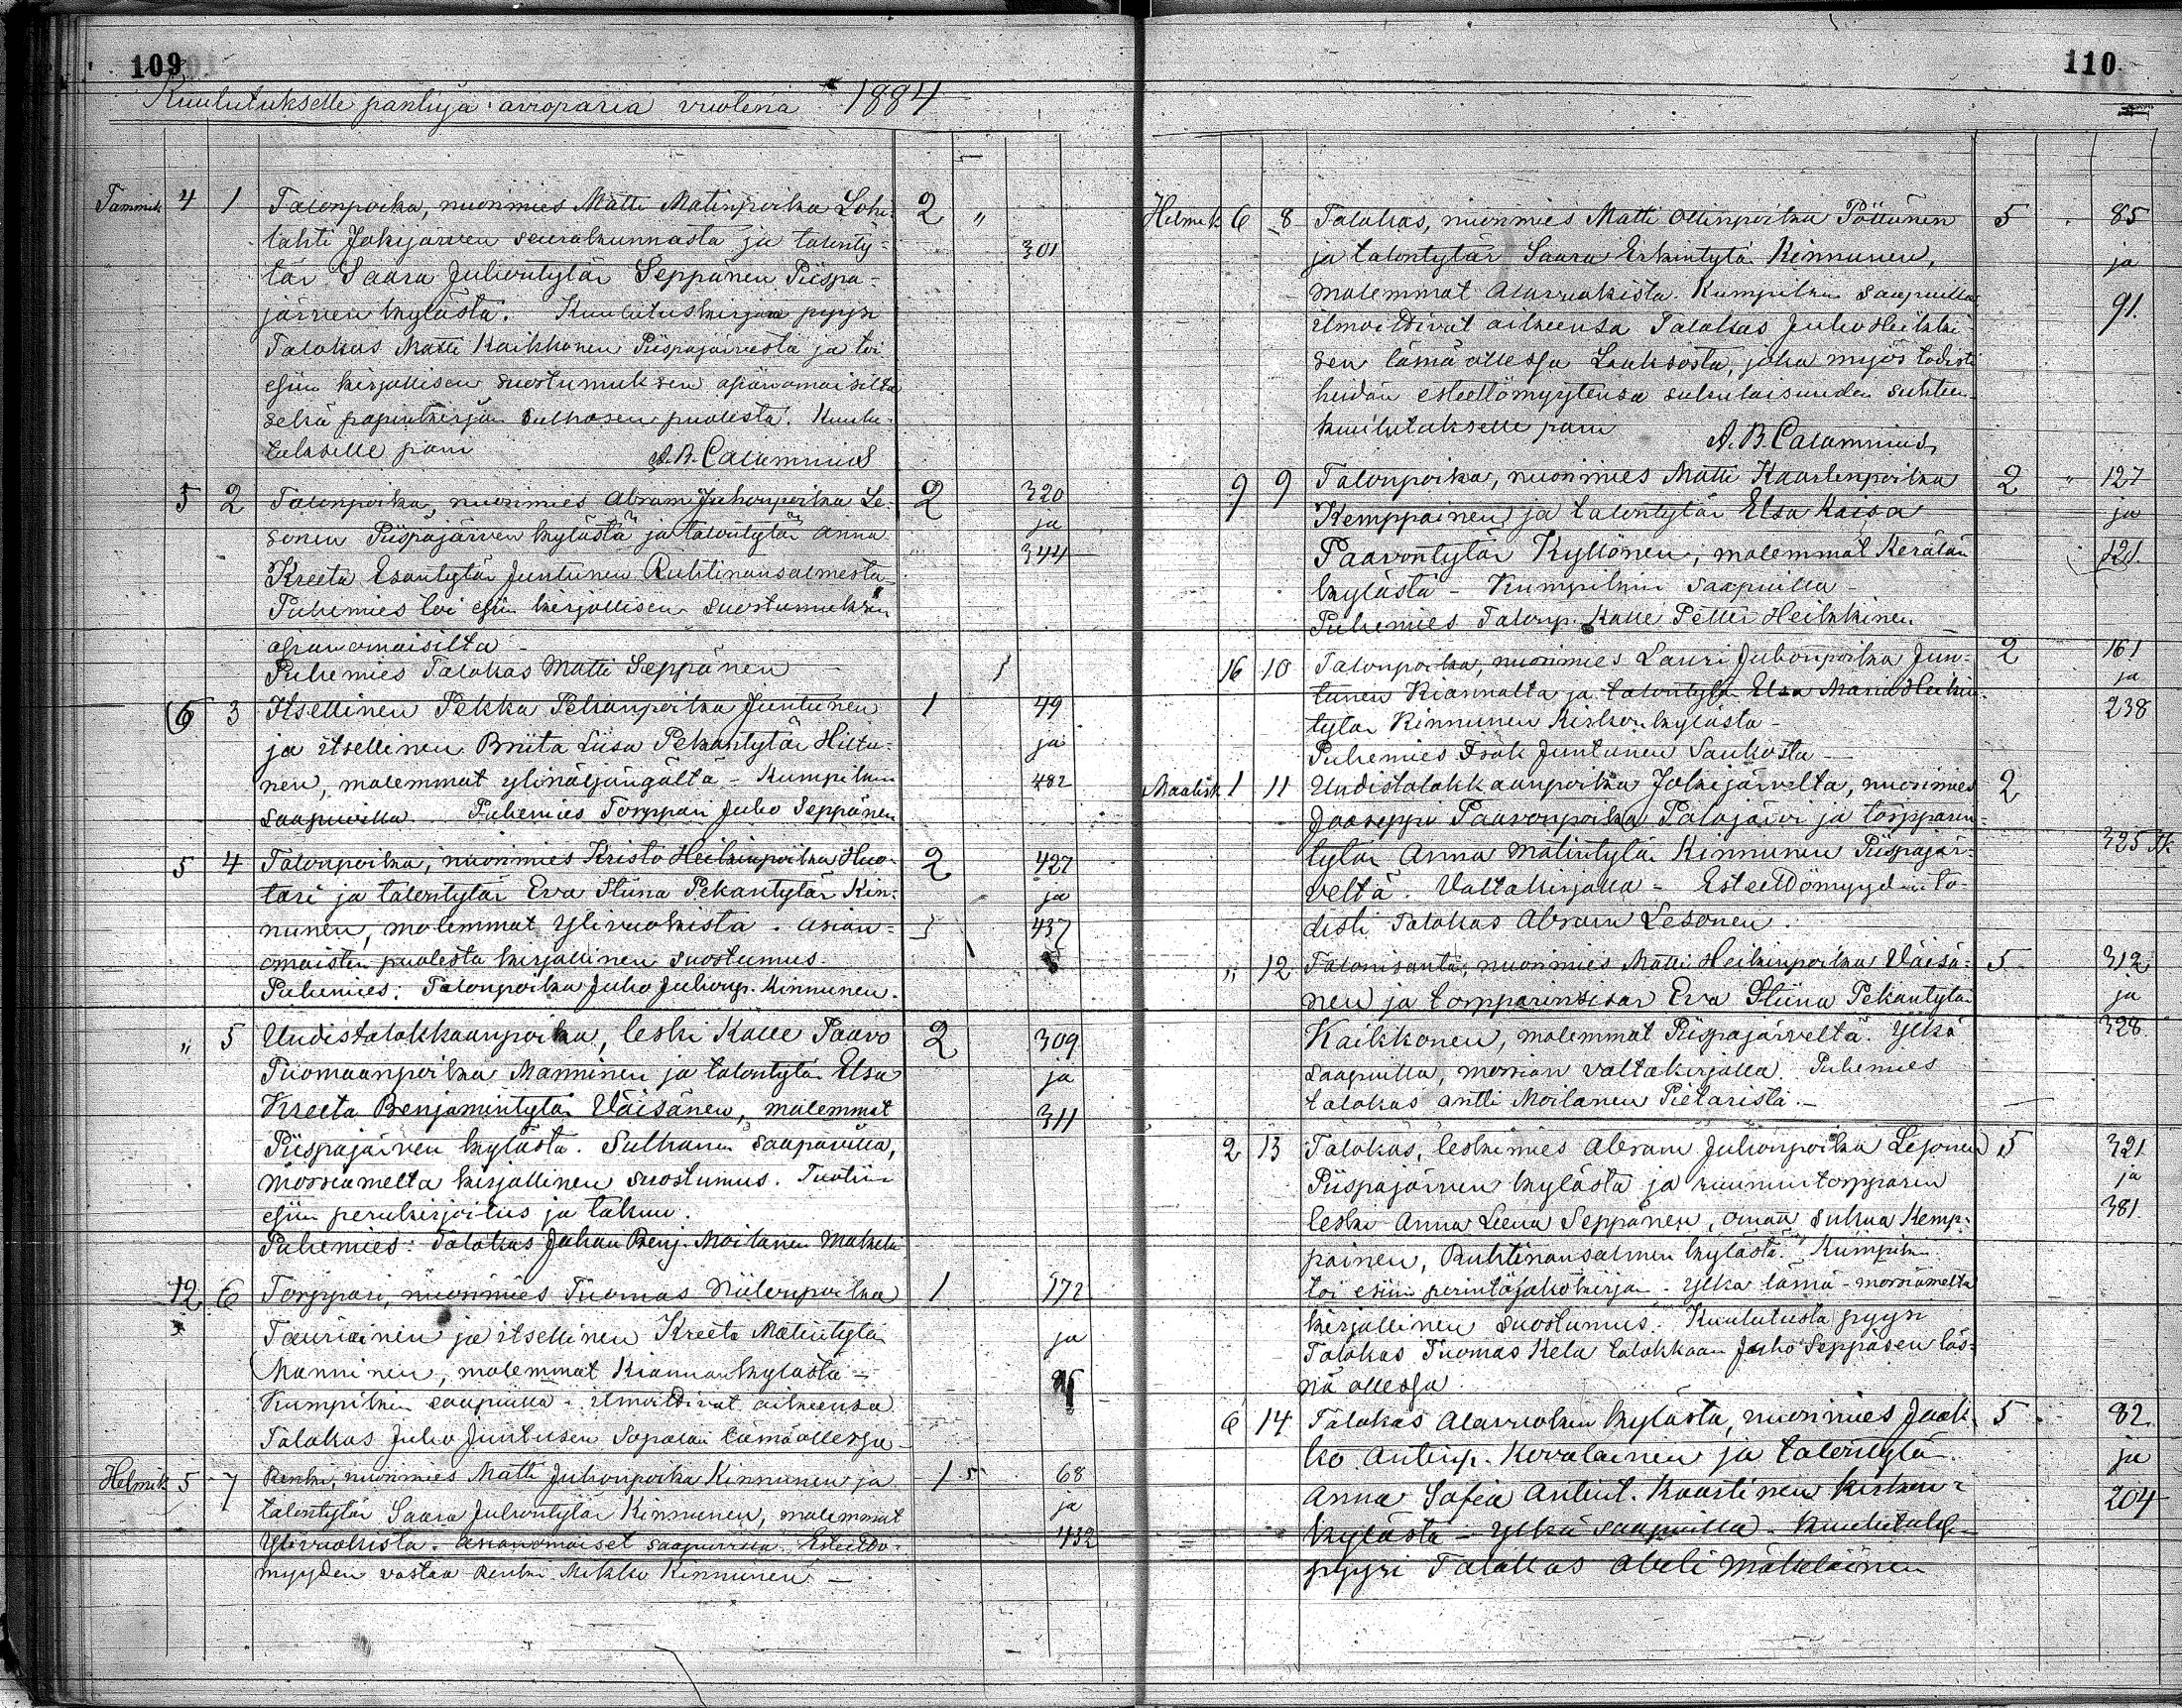 109
Kuulutukselle pantuja avioparia vuotena 1884
Tammik 4 1 Talonpoika, nuorimies Matti Matinpoika Lohi- 2 "
lahti Jokijärven seurakunnasta ja talonty- 301
tär Saara Juhontytär Seppänen Piispa-
järven kylästä. Kuulutuskirjaa pyysi
Talokas Matti Kaikkonen Piispajärvestä ja toi
esiin kirjallisen suostumuksen asianomaisilta
sekä papinkirjan sulhasen puolesta. Kuulu-
tukselle pani A.B. Calamnius
5 2 Talonpoika, nuorimies Abram Juhonpoika Le- 2 320
sonen Piispajärven kylästä ja talontytär Anna ja
Kreeta Esantytär Juntunen Ruhtinansalmesta 344
Puhemies toi esiin kirjallisen suostumuksen
asianomaisilta
Puhemies Talokas Matti Seppänen
6 3 Itsellinen Pekka Pekanpoika Juntunen 1 49
ja itsellinen Briita Liisa Pekantytär Hiltu- ja
nen, molemmat ylinäljängältä - Kumpikin 482
saapuvilla Puhemies Torppari Juho Seppänen
5 4 Talonpoika, nuorimies Kristo Heikinpoika Huo- 2 427
tari ja talontytär Eva Stiina Pekantytär Kin- ja
nunen, molemmat Ylivuokista. Asian- 437
omaisten puolesta kirjallinen suostumus
Puhemies: Talonpoika Juho Juhonp. Kinnunen.
" 5 Uudistalokkaanpoika, leski Kalle Paavo 2 309
Tuomaanpoika Manninen ja talontytär Elsa ja
Kreeta Benjamintytär Väisänen, molemmat 311
Piispajärven kylästä. Sulhanen saapuvilla,
morsiamelta kirjallinen suostumus. Tuotiin
esiin perukirjoitus ja takuu.
Puhemies: Talokas Juhan Benj. Moilanen
12 6 Torppari, nuorimies Tuomas Niilonpoika 1 172
Tauriainen ja itsellinen Kreeta Matintytär ja
Manninen, molemmat Kiannankylästä -
Kumpikin saapuvilla - ilmoittivat aikeensa
Talokas Juho Juntusen läsnä ollessa
Helmik 5 7 Renki, nuorimies Matti Juhonpoika Kinnunen ja 1 5 68
talontytär Saara Juhontytär Kinnunen, molemmat ja
Ylivuokista. Asianomaiset saapuvilla. Esteettö- 432
myyden vastaa Renki Mikko Kinnunen -
110
Helmik 6 8 Talokas, nuorimies Matti Ollinpoika Pöllänen 5 85
ja talontytär Saara Erkintytär Kinnunen, ja
molemmat Alavuokista. Kumpikin saapuvilla 91
ilmoittivat aikeensa Talokas Juho Heikki-
sen läsnä ollessa Lauhosta, joka myös todisti
heidän esteettömyytensä sukulaisuuden suhteen
kuulutukselle pani A.B. Calamnius,
9 9 Talonpoika, nuorimies Matti Kaarlenpoika 2 " 127
Kemppainen ja talontytär Elsa Kaisa ja
Paavontytär Kyllönen, molemmat Kerälän 121
kylästä - Kumpikin saapuvilla -
Puhemies Talonp. Kalle Petter Heikkinen
16 10 Talonpoika, nuorimies Lauri Juhonpoika Jun- 2 161
tunen Kiannalta ja talontytär Elsa Maria Heikin- ja
tytär Kinnunen Kirkonkylästä - 238
Puhemies Isak Juntunen
Maalisk 1 11 Uudistalokkaanpoika Jokijärveltä, nuorimies 2
Jooseppi Paavonpoika Palojärvi ja torpparin-
tytär Anna Matintytär Kinnunen Piispajär- 325
veltä. Valtakirjalla - Esteettömyyden to-
disti Talokas Abram Lesonen.
" 12 Talonisäntä, nuorimies Matti Heikinpoika Väisä- 5 312
nen ja torpparinsisar Eva Stiina Pekantytär ja
Kaikkonen, molemmat Piispajärveltä. Ylkä 328
saapuvilla, morsian valtakirjalla. Puhemies
talokas Antti Moilanen Pietaristä.-
2 13 Talokas, leskimies Abram Juhonpoika Lesonen 5 321
Piispajärven kylästä ja ruununtorpparin ja
leski Anna Leena Seppänen, omaa sukua Kemp- 381
painen, Ruhtinansalmen kylästä. Kumpikin
toi esiin perintöjakokirja - Ylkä läsnä - morsiamelta
kirjallinen suostumus. Kuulutusta pyysi
Talokas Tuomas Kela talokkaan Juho Seppäsen läs-
nä ollessa
6 14 Talokas Alavuokin kylästä, nuorimies Jaak- 5 82
ko Antinp. Kovalainen ja talontytär ja
Anna Sofia Antint. Kaartinen Kirkon- 204
kylästä - Ylkä saapuvilla - Kuulutusta
pyysi Talokas Abeli Mäkeläinen